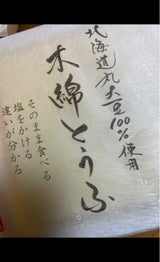 北海道丸大豆100%使用
木綿とうふ
そのまま食べる
塩をかける
違いが分かる